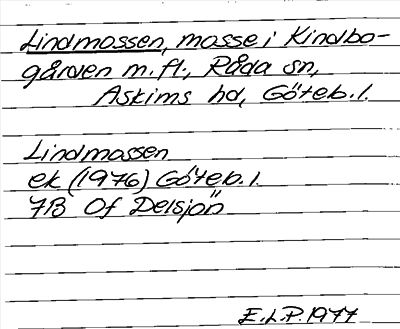 Lindmossen, mosse i Kindbo-
gården m.fl., Råda sn,
Askims hd, Göteb. l.
Lindmossen
ek (1976) Göteb. l.
7B Of Delsjön
E.L.P. 1977